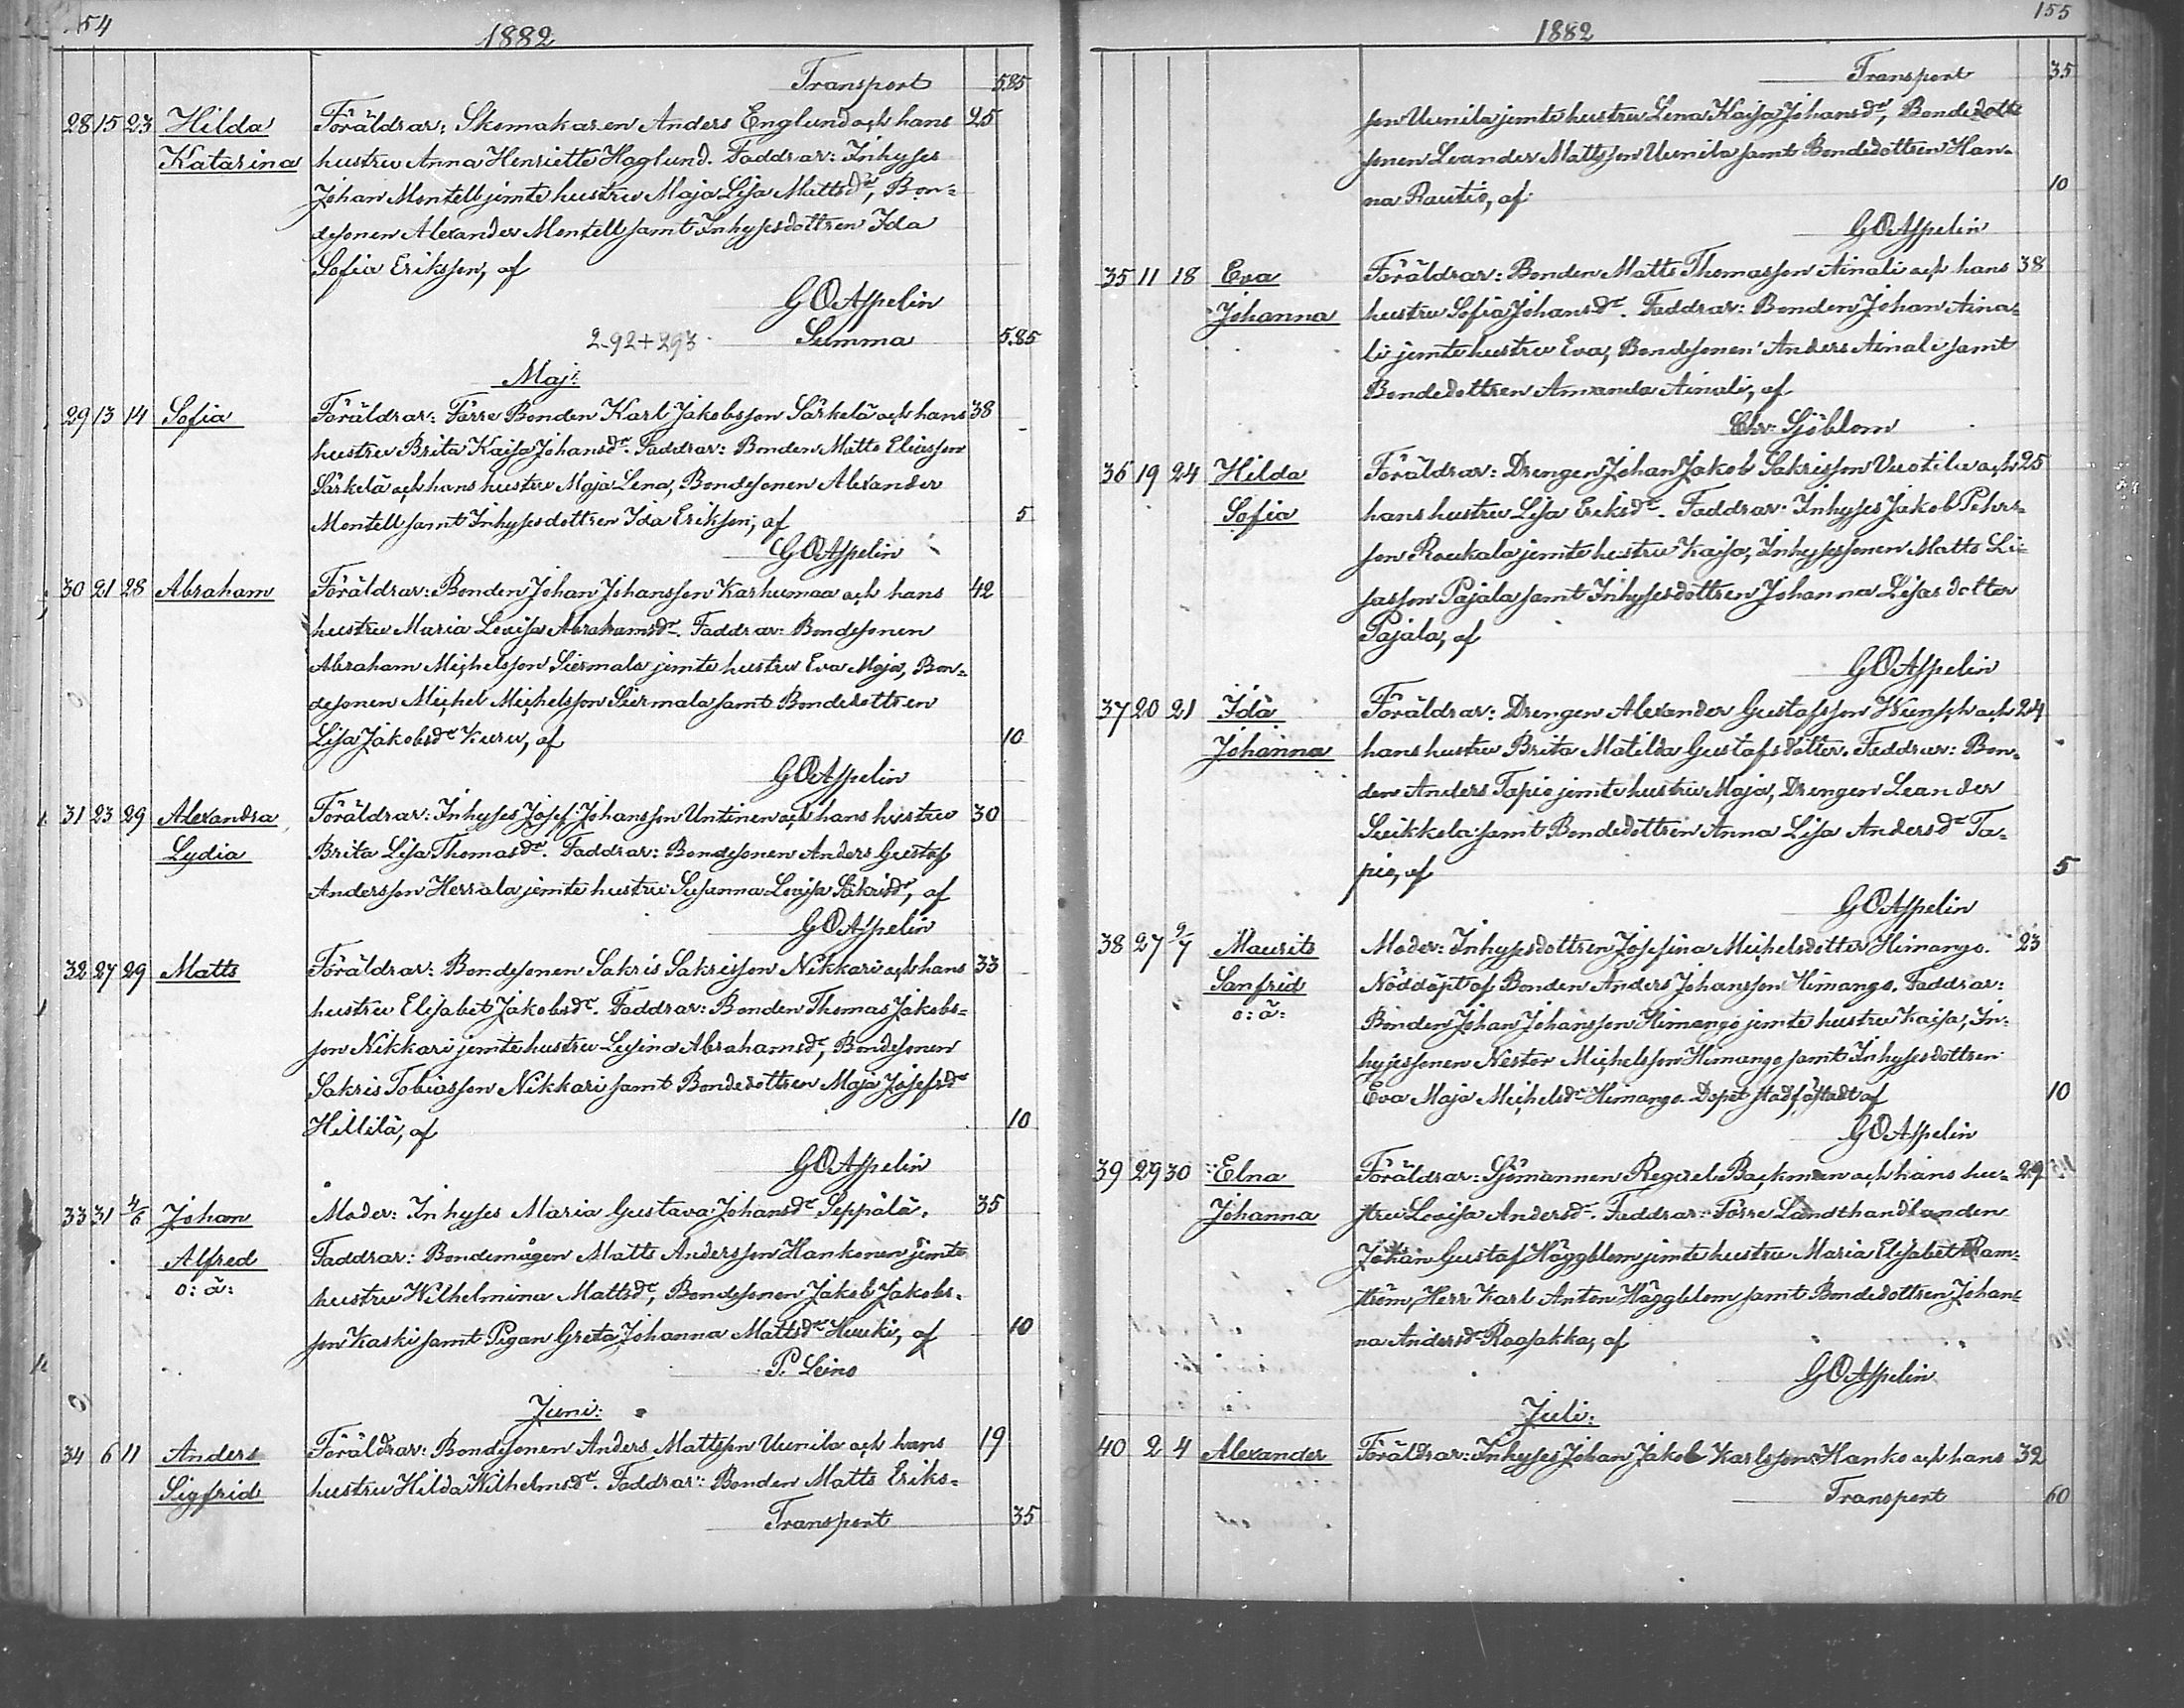 154
1882
Transport 5.85
28 15 23 Hilda Föräldrar: Skomakaren Anders Englund och hans 25
Katarina hustru Anna Henriette Haglund. Faddrar: Inhyses
Johan Montell jemte hustru Maja Lisa Mattsdr, Bon-
desonen Alexander Montell samt Inhysesdottren Ida
Sofia Eriksson, af
G O Appelin
2.92+293 Summa 5.85
Maj:
29 13 14 Sofia Föräldrar: Förre Bonden Karl Jakobsson Särkelä och hans 38
hustru Brita Kaisa Johansdr. Faddrar: Bonden Matts Eliasson
Särkelä och hans hustru Maja Lena, Bondesonen Alexander
Montell samt Inhysesdottren Ida Eriksson, af 5
G O Appelin
30 21 28 Abraham Föräldrar: Bonden Johan Johansson Karhumaa och hans 42
hustru Maria Lovisa Abrahamsdr. Faddrar: Bondesonen
Abraham Michelsson Siermala jemte hustru Eva Maja, Bon-
desonen Michel Michelsson Siermala samt Bondedottren
Lisa Jakobsdr Kuru, af 10
G O Appelin
31 23 29 Alexandra Föräldrar: Inhyses Josef Johansson Untinen och hans hustru 30
Lydia Brita Lisa Thomasdr. Faddrar: Bondesonen Anders Gustaf
Andersson Herrala jemte hustru Susanna Lovisa Sakrisdr, af
G O Appelin
32 27 29 Matts Föräldrar: Bondesonen Sakris Sakrisson Nikkari och hans 33
hustru Elisabet Jakobsdr. Faddrar: Bonden Thomas Jakobs-
son Nikkari jemte hustru Lusina Abrahamsdr, Bondesonen
Sakris Tobiasson Nikkari samt Bondedottren Maja Josefsdr
Hillilä, af 10
G O Appelin
33 31 4/6 Johan Moder: Inhyses Maria Gustava Johansdr Seppälä. 35
Alfred Faddrar: Bondemågen Matts Andersson Hankonen jemte
o: ä: hustru Wilhelmina Mattsdr, Bondesonen Jakob Jakobs-
son Kaski samt Pigan Greta Johanna Mattsdr Huuki, af 10
P. Leino
Juni:
34 6 11 Anders Föräldrar: Bondesonen Anders Mattsson Uunila och hans 19
Sigfrid hustru Hilda Wilhelmsdr. Faddrar: Bonden Matts Eriks-
Transport 35
155
1882
Transport 35
son Uunila jemte hustru Lena Kaisa Johansdr, Bonde
sonen Leander Mattsson Uunila samt Bondedottren Han-
na Rautio, af 10
G O Appelin
35 11 18 Eva Föräldrar: Bonden Matts Thomasson Ainali och hans 38
Johanna hustru Sofia Johansdr. Faddrar: Bonden Johan Aina-
li jemte hustru Eva, Bondesonen Anders Ainali samt
Bondedottren Amanda Ainali, af
Chr. Sjöblom
36 19 24 Hilda Föräldrar: Drengen Johan Jakob Sakrisson Vuotila och 25
Sofia hans hustru Lisa Eriksdr. Faddrar: Inhyses Jakob Pehrs-
son Roukala jemte hustru Kaisa, Inhysessonen Matts Li-
sasson Pajala samt Inhysesdottren Johanna Lisasdotter
Pajala, af
G O Appelin
37 20 21 Ida Föräldrar: Drengen Alexander Gustafsson Wunsch och 24
Johanna hans hustru Brita Matilda Gustafsdotter. Faddrar: Bon-
den Anders Tapio jemte hustru Maja, Drengen Leander
Seikkola samt Bondedottren Anna Lisa Andersdr Ta-
pio, af 5
G O Appelin
38 27 2/7 Maurits Moder: Inhysesdottren Josefina Michelsdotter Himango. 23
Sanfrid Nöddöpt af Bonden Anders Johansson Himango. Faddrar:
o: ä: Bonden Johan Johansson Himango jemte hustru Kaisa, In-
hysessonen Nestor Michelsson Himango samt Inhysesdottren
Eva Maja Michelsdr Himango. Dopet stadfästadt af 10
G O Appelin
39 29 30 Elna Föräldrar: Sjömannen Reguel Backman och hans hu- 29
Johanna stru Lovisa Andersdr. Faddrar: Förre Landthandlanden
Johan Gustaf Häggblom jemte hustru Maria Elisabet Ram-
ström, Herr Karl Anton Häggblom samt Bondedottren Johan-
na Andersdr Raasakka, af
G O Appelin
Juli:
40 2 4 Alexander Föräldrar: Inhyses Johan Jakob Karlsson Hanko och hans 32
Transport 60